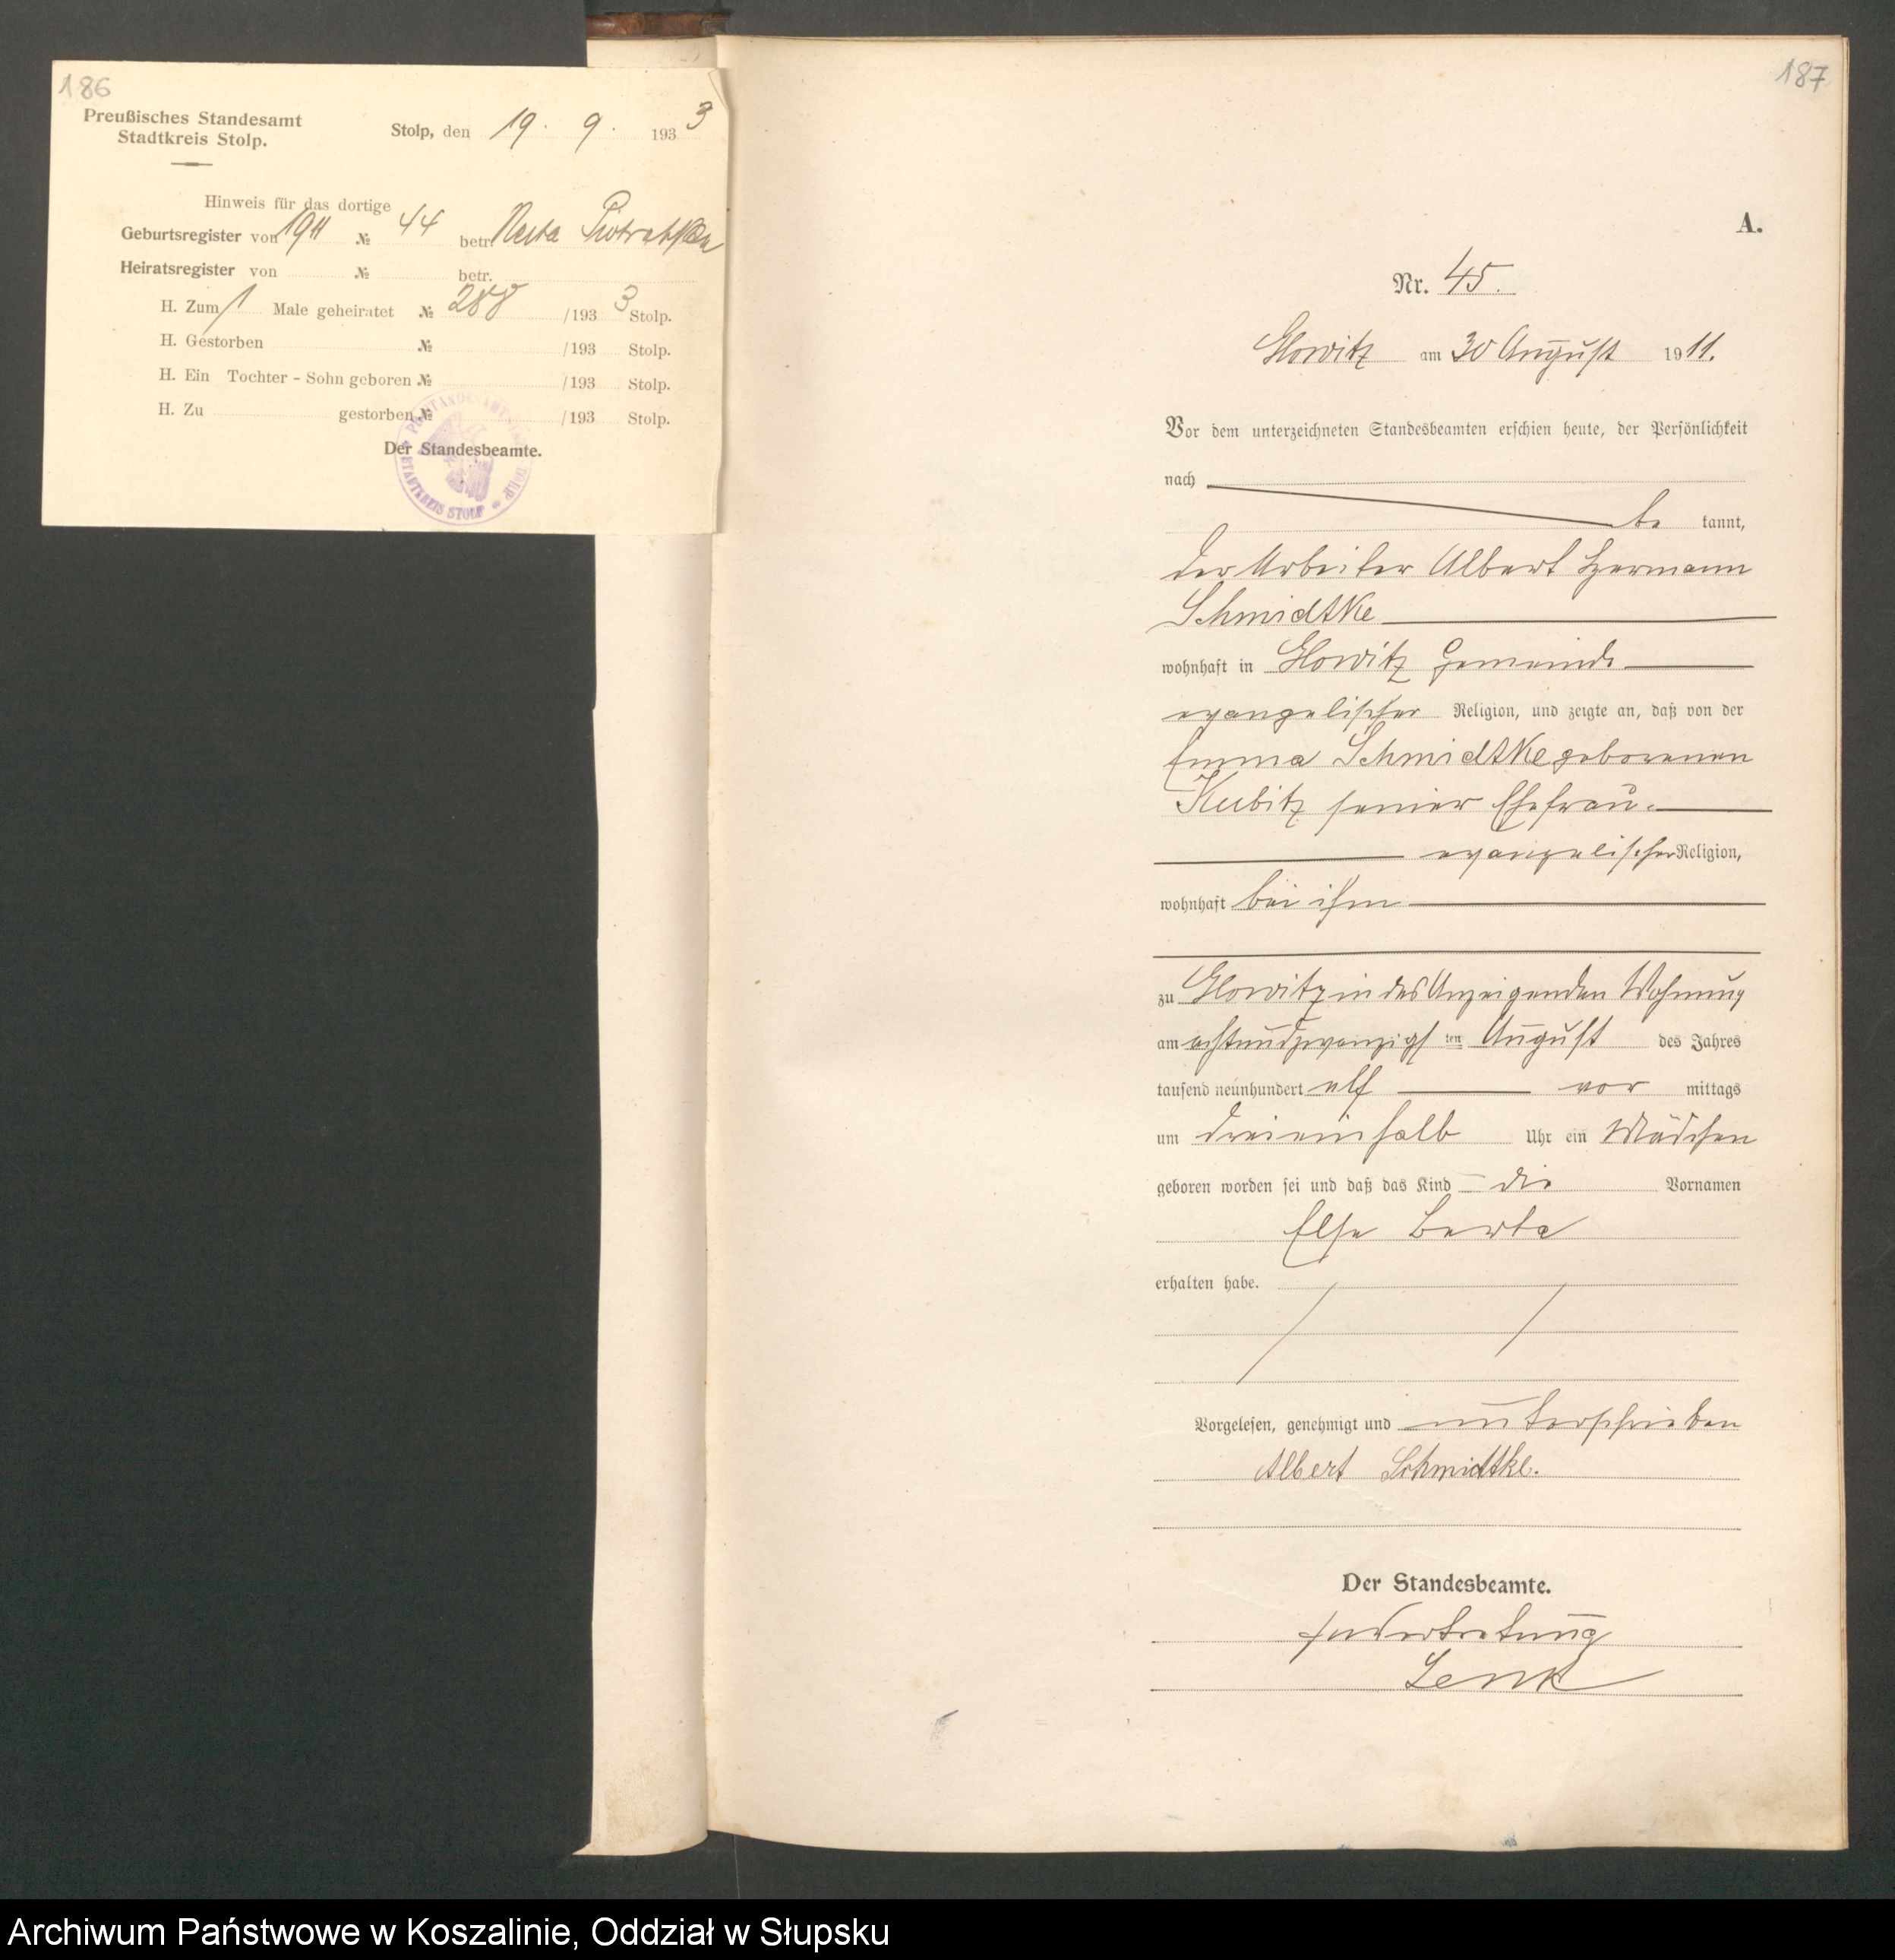 186
Preußisches Standesamt
Stadtkreis Stolp.
Stolp, den 19. 9. 1933
Hinweis für das dortige
Geburtsregister von 1911 № 44 betr.
Heiratsregister von № betr.
H. Zum 1 Male geheiratet № 288 /1933 Stolp.
H. Gestorben № /193 Stolp.
H. Ein Tochter - Sohn geboren № /193 Stolp.
H. Zu gestorben № /193 Stolp.
Der Standesbeamte.
STADTKREIS STOLP
187
A.
Nr. 45.
Glowitz am 30 August 1911.
Vor dem unterzeichneten Standesbeamten erschien heute, der Persönlichkeit
nach
be kannt,
der Arbeiter Albert Hermann
Schmidtke
wohnhaft in Glowitz Gemeinde
evangelischer Religion, und zeigte an, daß von der
Emma Schmidtke geborenen
Kubitz seiner Ehefrau.
evangelischer Religion,
wohnhaft bei ihm
zu Glowitz in des Anzeigenden Wohnung
am achtundzwanzigsten August des Jahres
tausend neunhundert elf vor mittags
um dreieinhalb Uhr ein Mädchen
geboren worden sei und daß das Kind die Vornamen
Else Berta
erhalten habe.
Vorgelesen, genehmigt und unterschrieben
Albert Schmidtke.
Der Standesbeamte.
In Vertretung
Lenk
Archiwum Państwowe w Koszalinie, Oddział w Słupsku